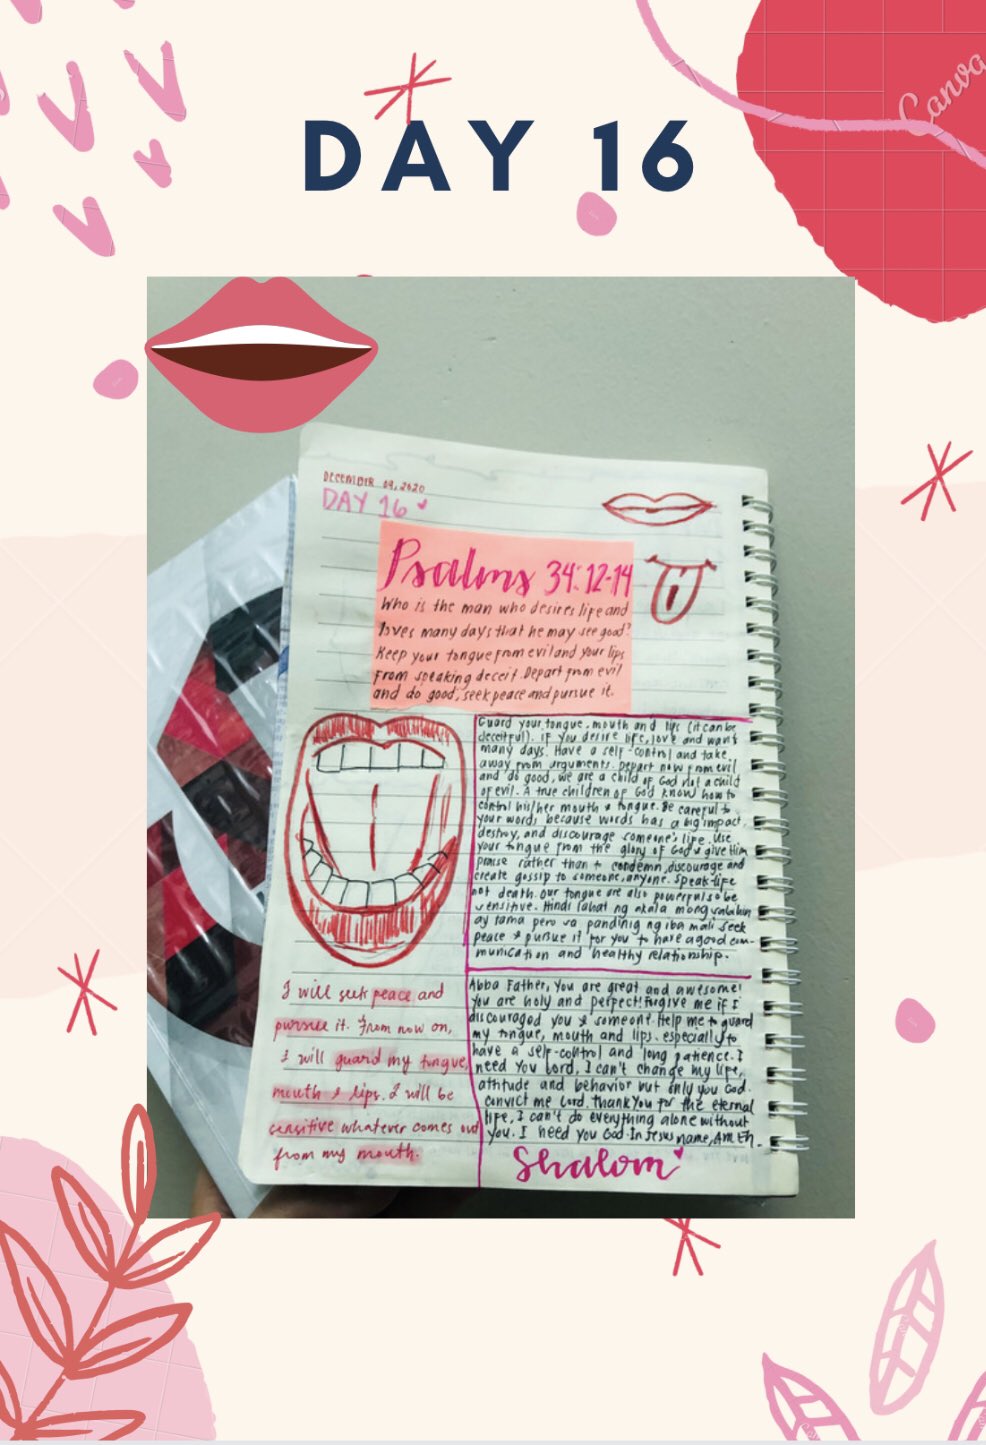 DAY 16
Canva
DECEMBER 09, 2020
DAY 16
Psalms 34:12-14
Who is the man who desires life and
loves many days that he may see good?
Keep your tongue from evil and your lips
from speaking deceit. Depart from evil
and do good, seek peace and pursue it.
Guard your tongue, mouth and lips (it can be
deceitful). if you desire life, love and want
many days. Have a self-control and take
away from arguments. Depart now from evil
and do good, we are a child of God not a child
of evil. A true children of God know how to
control his/her mouth & tongue. Be careful to
your words, because words has a big impact,
destroy, and discourage someone's life. Use
your tongue from the glory of God & give Him
praise rather than to condemn, discourage and
create gossip to someone, anyone. Speak life
not death. our tongue are also powerful so be
sensitive. Hindi lahat ng akala mong sabihin
ay tama pero sa pandinig ng iba mali. seek
peace & pursue it for you to have a good com-
munication and healthy relationship.
I will seek peace and
pursue it. From now on,
I will guard my tongue,
mouth & lips. I will be
sensitive whatever comes out
from my mouth.
Abba Father, You are great and awesome!
You are holy and perfect! Forgive me if I
discouraged you & someone. Help me to guard
my tongue, mouth and lips. especially to
have a self-control and long patience. I
need You Lord, I can't change my life,
attitude and behavior but only you God.
Convict me Lord. thank You for the eternal
life, I can't do everything alone without
you. I need you God. In Jesus name, AMEN.
Shalom